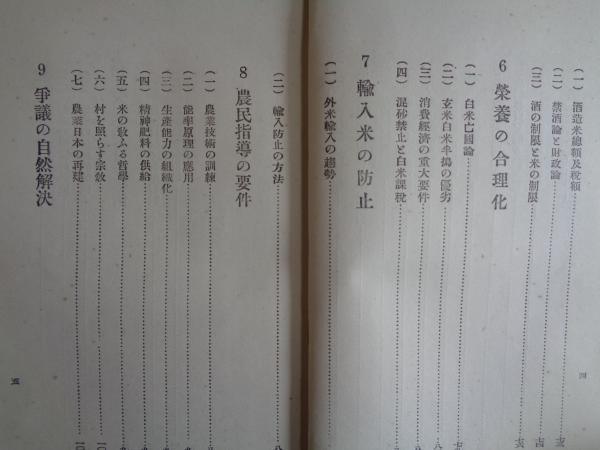 (一) 酒造米總額及稅額
(二) 禁酒論と財政論
(三) 酒の制限と米の制限
6 榮養の合理化
(一) 白米亡國論
(二) 玄米白米半搗の優劣
(三) 消費經濟の重大要件
(四) 混砂禁止と白米課稅
7 輸入米の防止
(一) 外米輸入の趨勢
四
(二) 輸入防止の方法
8 農民指導の要件
(一) 農業技術の訓練
(二) 能率原理の應用
(三) 生產能力の組織化
(四) 精神肥料の供給
(五) 米の敎ふる哲學
(六) 村を照らす宗敎
(七) 農業日本の再建
9 爭議の自然解決
五